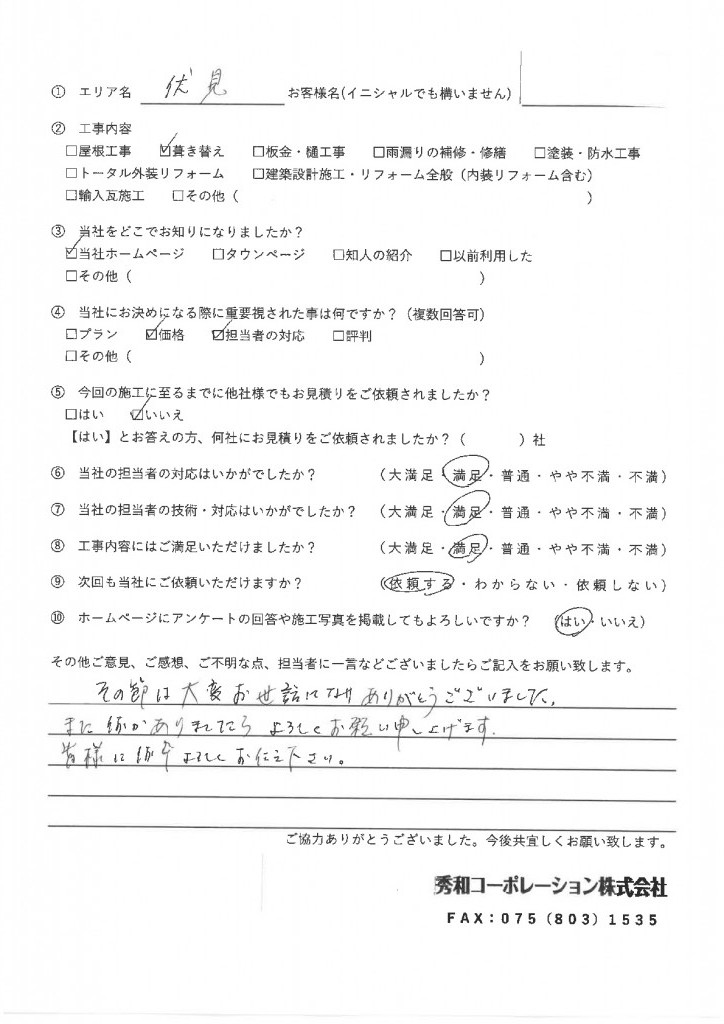 ① エリア名 伏見 お客様名(イニシャルでも構いません)
② 工事内容
□屋根工事 ☑葺き替え □板金・樋工事 □雨漏りの補修・修繕 □塗装・防水工事
□トータル外装リフォーム □建築設計施工・リフォーム全般（内装リフォーム含む）
□輸入瓦施工 □その他（ ）
③ 当社をどこでお知りになりましたか？
☑当社ホームページ □タウンページ □知人の紹介 □以前利用した
□その他（ ）
④ 当社にお決めになる際に重要視された事は何ですか？（複数回答可）
□プラン ☑価格 ☑担当者の対応 □評判
□その他（ ）
⑤ 今回の施工に至るまでに他社様でもお見積りをご依頼されましたか？
□はい ☑いいえ
【はい】とお答えの方、何社にお見積りをご依頼されましたか？（ ）社
⑥ 当社の担当者の対応はいかがでしたか？ （大満足・満足・普通・やや不満・不満）
⑦ 当社の担当者の技術・対応はいかがでしたか？ （大満足・満足・普通・やや不満・不満）
⑧ 工事内容にはご満足いただけましたか？ （大満足・満足・普通・やや不満・不満）
⑨ 次回も当社にご依頼いただけますか？ （依頼する・わからない・依頼しない）
⑩ ホームページにアンケートの回答や施工写真を掲載してもよろしいですか？ （はい・いいえ）
その他ご意見、ご感想、ご不明な点、担当者に一言などございましたらご記入をお願い致します。
その節は大変お世話になりありがとうございました。
また何かありましたら よろしくお願い申し上げます.
皆様に何卒よろしくお伝え下さい。
ご協力ありがとうございました。今後共宜しくお願い致します。
秀和コーポレーション株式会社
FAX：075（803）1535